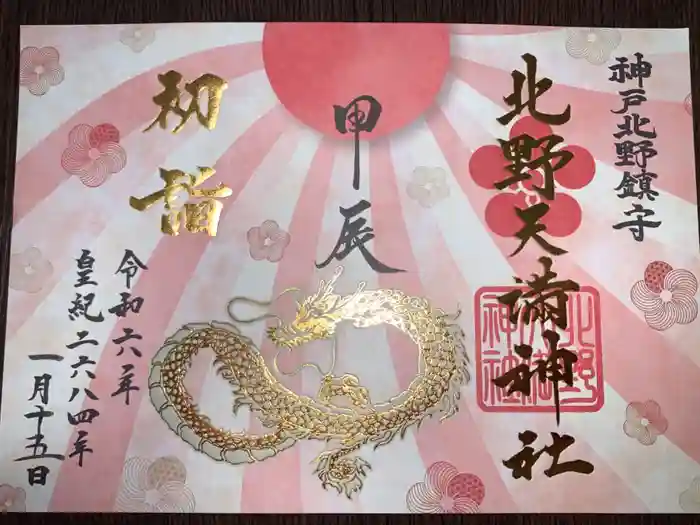 神戸北野鎮守
北野天満神社
甲辰
初詣
令和六年
皇紀二六八四年
一月十五日